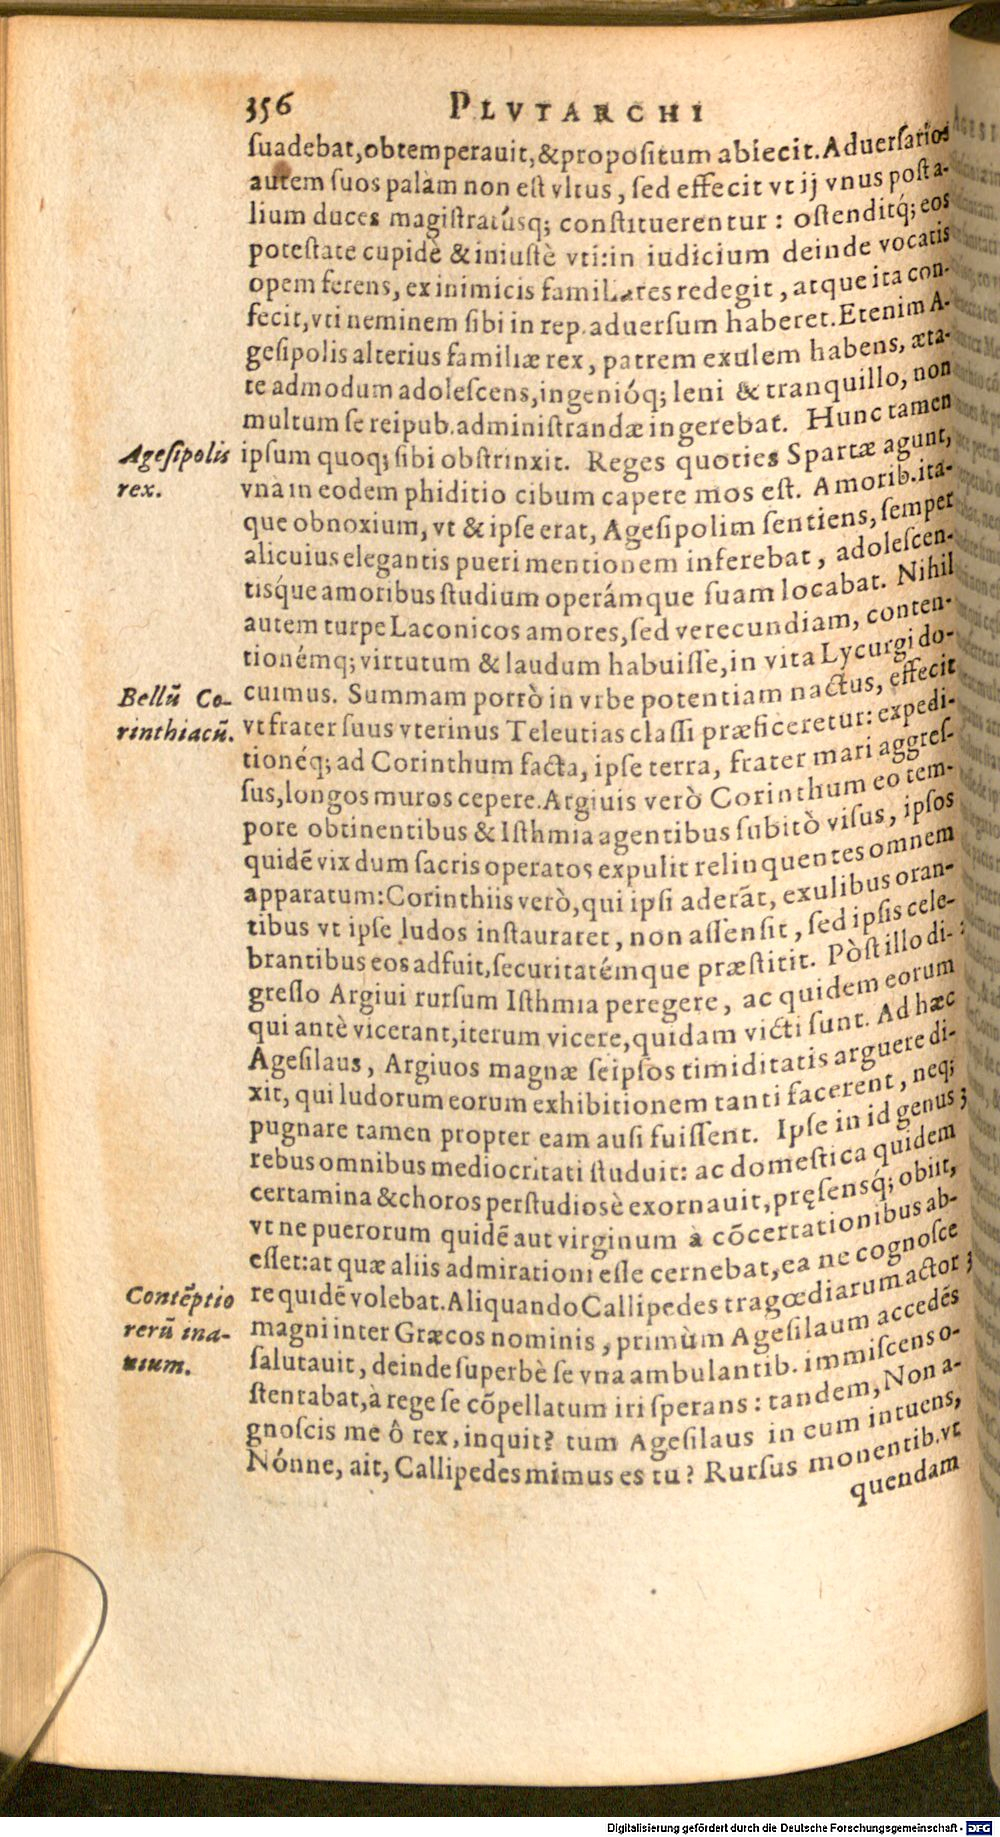 356 PLVTARCHI
suadebat, obtemperauit, & propositum abiecit. Aduersarios
autem suos palàm non est vltus, sed effecit vt ij vnus post a-
lium duces magistratúsq; constituerentur: ostenditq́; eos
potestate cupidè & iniustè vti: in iudicium deinde vocatis
opem ferens, ex inimicis familiares redegit, atque ita con-
fecit, vti neminem sibi in rep. aduersum haberet. Etenim A-
gesipolis alterius familiæ rex, patrem exulem habens, æta-
te admodum adolescens, ingenióq; leni & tranquillo, non
multum se reipub. administrandæ ingerebat. Hunc tamen
Agesipolis
rex.
ipsum quoq; sibi obstrinxit. Reges quoties Spartæ agunt,
vna in eodem phiditio cibum capere mos est. Amorib. ita-
que obnoxium, vt & ipse erat, Agesipolim sentiens, semper
alicuius elegantis pueri mentionem inferebat, adolescen-
tisque amoribus studium operámque suam locabat. Nihil
autem turpe Laconicos amores, sed verecundiam, conten-
tionémq; virtutum & laudum habuisse, in vita Lycurgi do-
Bellū Co-
rinthiacū.
cuimus. Summam porrò in vrbe potentiam nactus, effecit
vt frater suus vterinus Teleutias classi præficeretur: expedi-
tionéq; ad Corinthum facta, ipse terra, frater mari aggres-
sus, longos muros cepere. Argiuis verò Corinthum eo tem-
pore obtinentibus & Isthmia agentibus subitò visus, ipsos
quidē vix dum sacris operatos expulit relinquentes omnem
apparatum: Corinthiis verò, qui ipsi aderāt, exulibus oran-
tibus vt ipse ludos instauraret, non assensit, sed ipsis cele-
brantibus eos adfuit, securitatémque præstitit. Pòst illo di-
gresso Argiui rursum Isthmia peregere, ac quidem eorum
qui antè vicerant, iterum vicere, quidam victi sunt. Ad hæc
Agesilaus, Argiuos magnæ seipsos timiditatis arguere di-
xit, qui ludorum eorum exhibitionem tanti facerent, neq;
pugnare tamen propter eam ausi fuissent. Ipse in id genus
rebus omnibus mediocritati studuit: ac domestica quidem
certamina & choros perstudiosè exornauit, pręsensq́; obiit,
vt ne puerorum quidē aut virginum à cōcertationibus ab-
esset: at quæ aliis admirationi esse cernebat, ea ne cognosce
Contēptio
rerū ina-
nium.
re quidē volebat. Aliquando Callipedes tragœdiarum actor
magni inter Græcos nominis, primùm Agesilaum accedēs
salutauit, deinde superbè se vna ambulantib. immiscens o-
stentabat, à rege se cōpellatum iri sperans: tandem, Non a-
gnoscis me ô rex, inquit? tum Agesilaus in eum intuens,
Nónne, ait, Callipedes mimus es tu? Rursus monentib. vt
quendam
Digitalisierung gefördert durch die Deutsche Forschungsgemeinschaft - DFG